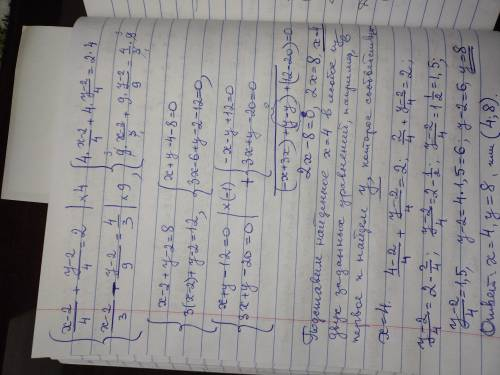 { (x-2)/4 + (y-2)/4 = 2 | ×4 { 4·(x-2)/4 + 4·(y-2)/4 = 2·4
(x-2)/3 - (y-2)/9 = 4/3 | ×9 9·(x-2)/3 + 9·(y-2)/9 = 4/3·9
{ x-2+y-2=8 { x+y-4-8=0
3(x-2)+y-2=12, 3x-6+y-2-12=0,
{ x+y-12=0 | ×(-1) { -x-y+12=0
3x+y-20=0 | + 3x+y-20=0
(-x+3x)+(y-y)+(12-20)=0
2x-8=0, 2x=8, x=4
Подставим найденное x=4 в любое из
двух заданных уравнений, например,
первое и найдем y, которое соответствует
x=4. (4-2)/4 + (y-2)/4 = 2; 2/4 + (y-2)/4 = 2;
(y-2)/4 = 2-2/4; (y-2)/4 = 2-1/2; (y-2)/4 = 1 1/2 = 1,5;
(y-2)/4 = 1,5, y-2=4·1,5=6; y-2=6, y=8
Ответ: x=4, y=8, или (4,8).